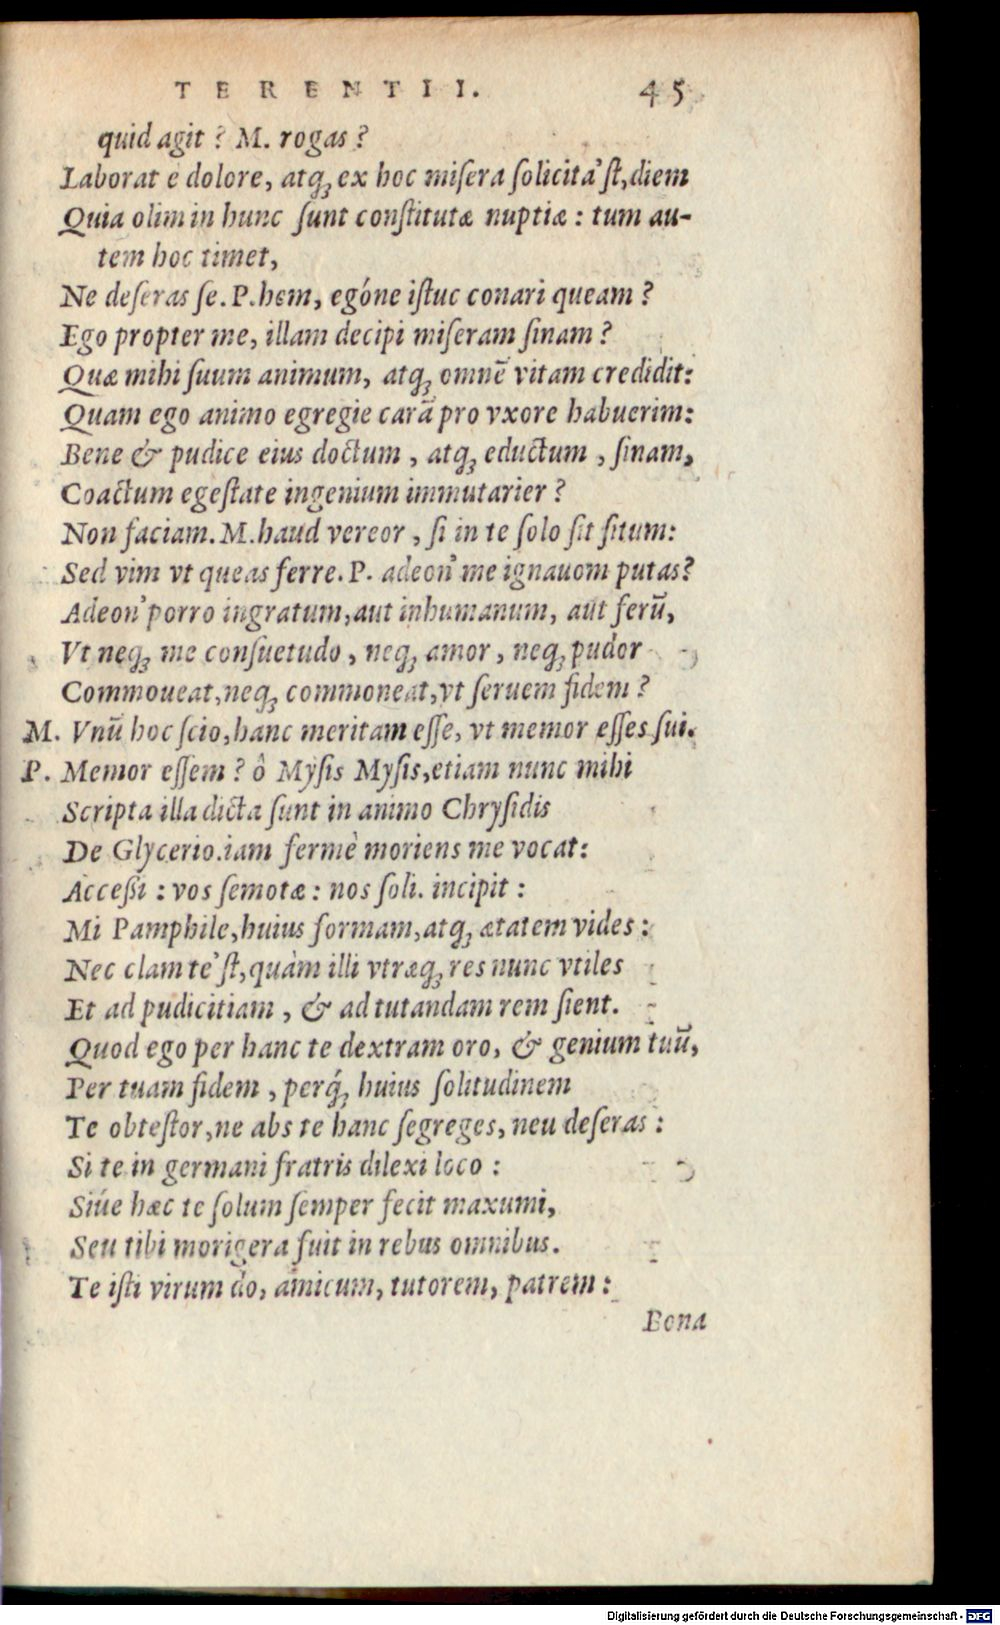 TERENTII. 45
quid agit? M. rogas?
Laborat e dolore, atq; ex hoc misera solicita'st, diem
Quia olim in hunc sunt constitutæ nuptiæ: tum au-
tem hoc timet,
Ne deseras se. P. hem, egóne istuc conari queam?
Ego propter me, illam decipi miseram sinam?
Quæ mihi suum animum, atq; omnē vitam credidit:
Quam ego animo egregie carā pro vxore habuerim:
Bene & pudice eius doctum, atq; eductum, sinam,
Coactum egestate ingenium immutarier?
Non faciam. M. haud vereor, si in te solo sit situm:
Sed vim vt queas ferre. P. adeon' me ignauom putas?
Adeon' porro ingratum, aut inhumanum, aut ferū,
Vt neq; me consuetudo, neq; amor, neq; pudor
Commoueat, neq; commoneat, vt seruem fidem?
M. Vnū hoc scio, hanc meritam esse, vt memor esses sui.
P. Memor essem? ô Mysis Mysis, etiam nunc mihi
Scripta illa dicta sunt in animo Chrysidis
De Glycerio. iam fermè moriens me vocat:
Accessi: vos semotæ: nos soli. incipit:
Mi Pamphile, huius formam, atq; ætatem vides:
Nec clam te'st, quàm illi vtræq; res nunc vtiles
Et ad pudicitiam, & ad tutandam rem sient.
Quod ego per hanc te dextram oro, & genium tuū,
Per tuam fidem, perq́; huius solitudinem
Te obtestor, ne abs te hanc segreges, neu deseras:
Si te in germani fratris dilexi loco:
Siúe hæc te solum semper fecit maxumi,
Seu tibi morigera fuit in rebus omnibus.
Te isti virum do, amicum, tutorem, patrem:
Bona
Digitalisierung gefördert durch die Deutsche Forschungsgemeinschaft - DFG